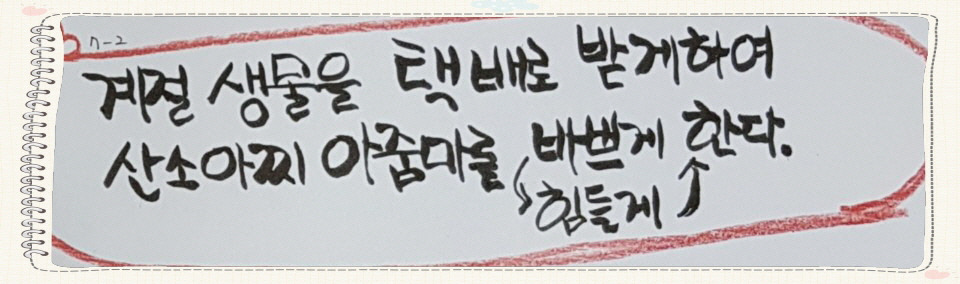 7-2
계절 생물을 택배로 받게하여
산소아찌 아줌마를 바쁘게 한다.
힘들게